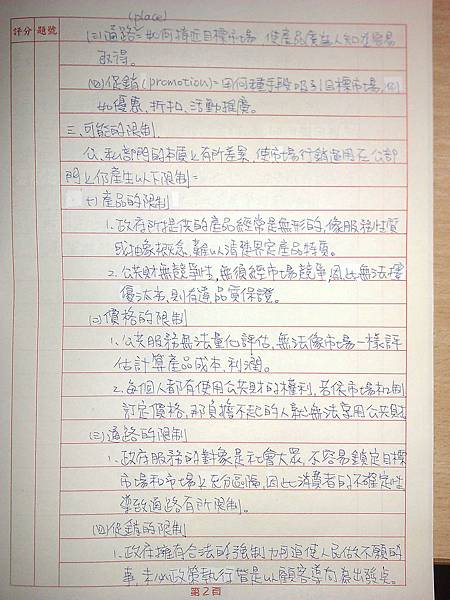 評分 題號
(place)
(三)通路=如何接近目標市場,使產品廣為人知或容易
取得。
(四)促銷(promotion)=用何種手段吸引目標市場,例
如優惠、折扣、活動推廣。
三、可能的限制
公、私部門的本質上有所差異,使市場行銷運用在公部
門上仍產生以下限制=
(一)產品的限制
1.政府所提供的產品經常是無形的,像服務性質
或抽象概念,難以清楚界定產品特質。
2.公共財無競爭性,無須經市場競爭,因此無法擇
優汰劣,則有違品質保證。
(二)價格的限制
1.公共服務無法量化評估,無法像市場一樣評
估計算產品成本、利潤。
2.每個人都有使用公共財的權利,若依市場機制
訂定價格,那負擔不起的人就無法享用公共財
(三)通路的限制
1.政府服務的對象是社會大眾,不容易鎖定目標
市場和市場上充分區隔,因此消費者的不確定性
導致通路有所限制。
(四)促銷的限制
1.政府擁有合法的強制力可迫使人民做不願的
事,未必政策執行皆是以顧客導向為出發點。
第2頁